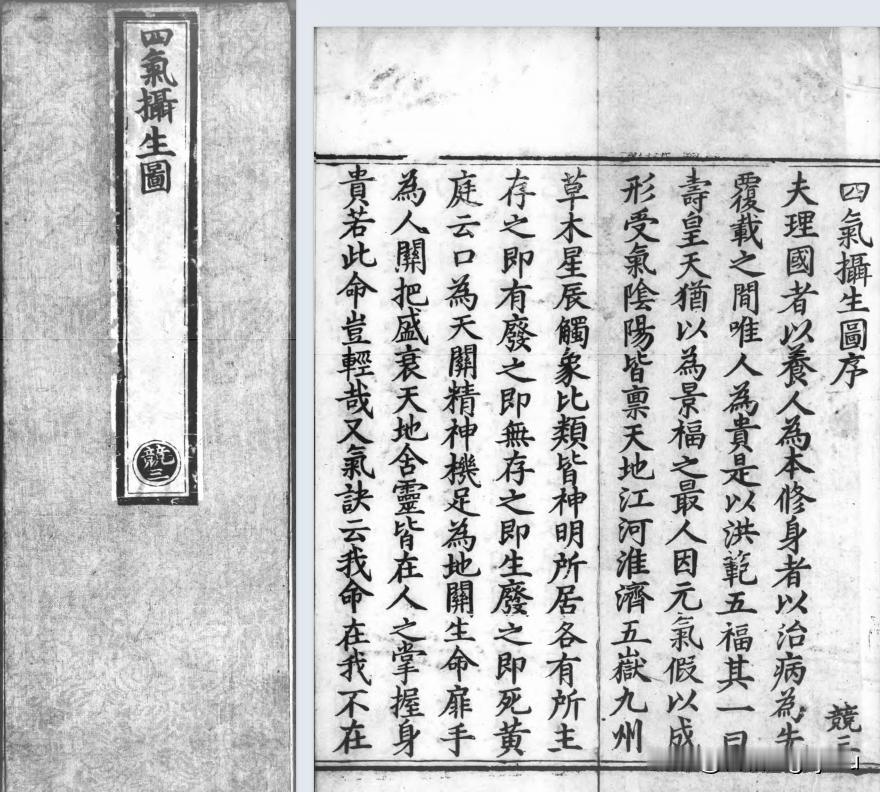 四氣攝生圖
競三
四氣攝生圖序
競三
夫理國者以養人為本修身者以治病為先
覆載之間唯人為貴是以洪範五福其一曰
壽皇天猶以為景福之最人因元氣假以成
形受氣隂陽皆禀天地江河淮濟五嶽九州
草木星辰觸象比類皆神明所居各有所主
存之即有廢之即無存之即生廢之即死黄
庭云口為天關精神機足為地關生命扉手
為人關把盛衰天地舍靈皆在人之掌握身
貴若此命豈輕哉又氣訣云我命在我不在